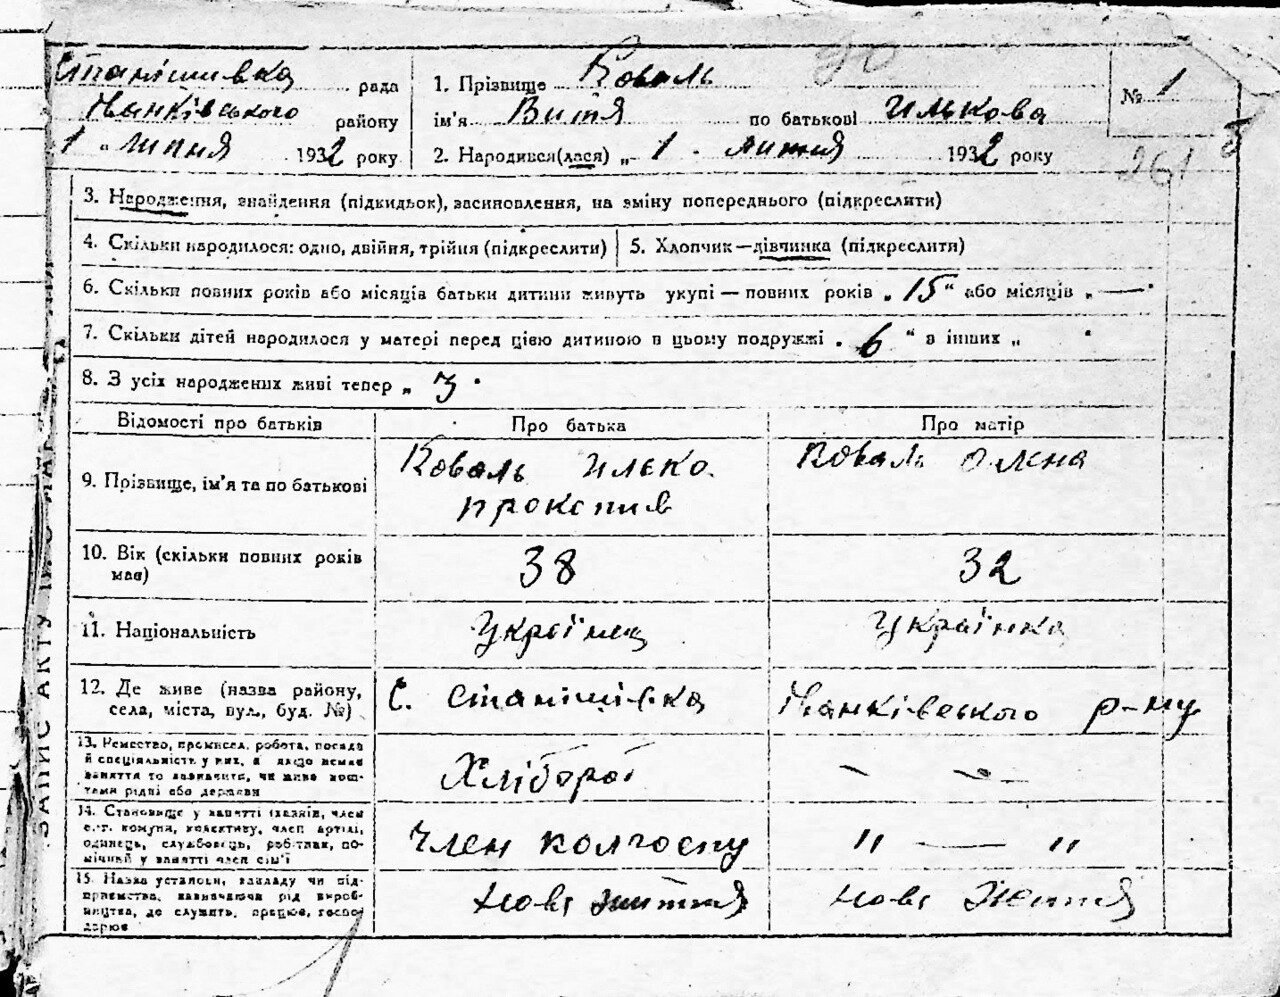 Станішивка рада
Іванківського району
1 „ липня 1932 року
1. Прізвище Коваль
ім'я Витя по батькові Илькова
2. Народився(лася) „ 1 . липня 1932 року
№ 1
261
3. Народження, знайдення (підкидьок), засиновлення, на зміну попереднього (підкреслити)
4. Скільки народилося: одно, двійня, трійня (підкреслити)
5. Хлопчик—дівчинка (підкреслити)
6. Скільки повних років або місяців батьки дитини живуть укупі — повних років „ 15 " або місяців „ — "
7. Скільки дітей народилося у матері перед цією дитиною в цьому подружжі „ 6 " в інших „ "
8. З усіх народжених живі тепер „ 3 "
Відомості про батьків
Про батька
Про матір
9. Прізвище, ім'я та по батькові
Коваль Илєко
прокопив
Коваль Олена
10. Вік (скільки повних років
має)
38
32
11. Національність
Українец
Українка
12. Де живе (назва району,
села, міста, вул., буд. №)
С. Станішівка
Іванківського р-ну
13. Ремество, промисел, робота, посада
й спеціяльність у них, а якщо немає
заняття то зазначити, чи живе кош-
тами рідні або держави
Хлібороб
— —
14. Становище у занятті (хазяїн, член
с.-г. комуни, колективу, член артілі,
одинець, службовець, робітник, по-
мічний у занятті член сім'ї
Член колгоспу
" — "
15. Назва установи, закладу чи під-
приємства, зазначаючи рід вироб-
ництва, де служить, працює, госпо-
дарює
Нове життя
Нове Життя
ЗАПИС АКТУ